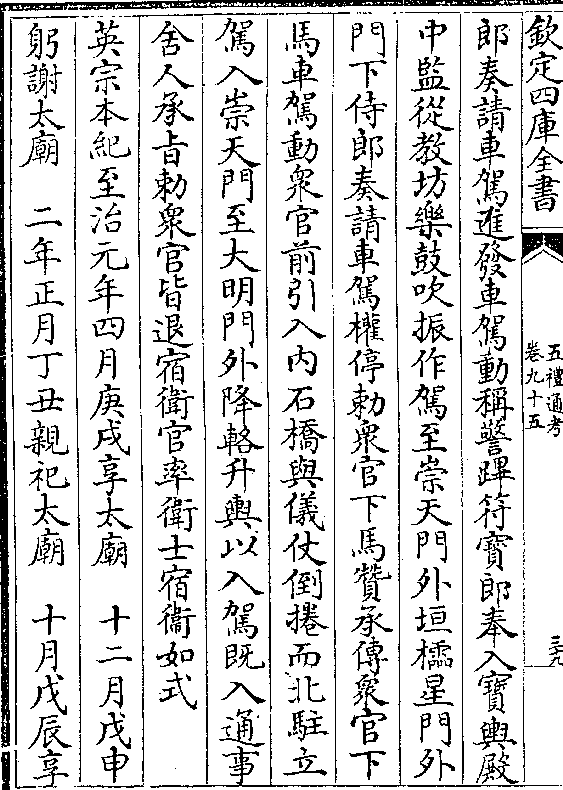 欽定四庫全書
五禮通考
卷九十五
三九
郎奏請車駕進發車駕動稱警蹕符寳郎奉入寳輿殿
中監從教坊樂鼓吹振作駕至崇天門外垣櫺星門外
門下侍郎奏請車駕權停勅衆官下馬贊承傳衆官下
馬車駕動衆官前引入内石橋與儀仗倒捲而北駐立
駕入崇天門至大明門外降輅升輿以入駕既入通事
舍人承㫖勅衆官皆退宿衛官率衛士宿衞如式
英宗本紀至治元年四月庚戌享太廟　十二月戊申
躬謝太廟　二年正月丁丑親祀太廟　十月戊辰享